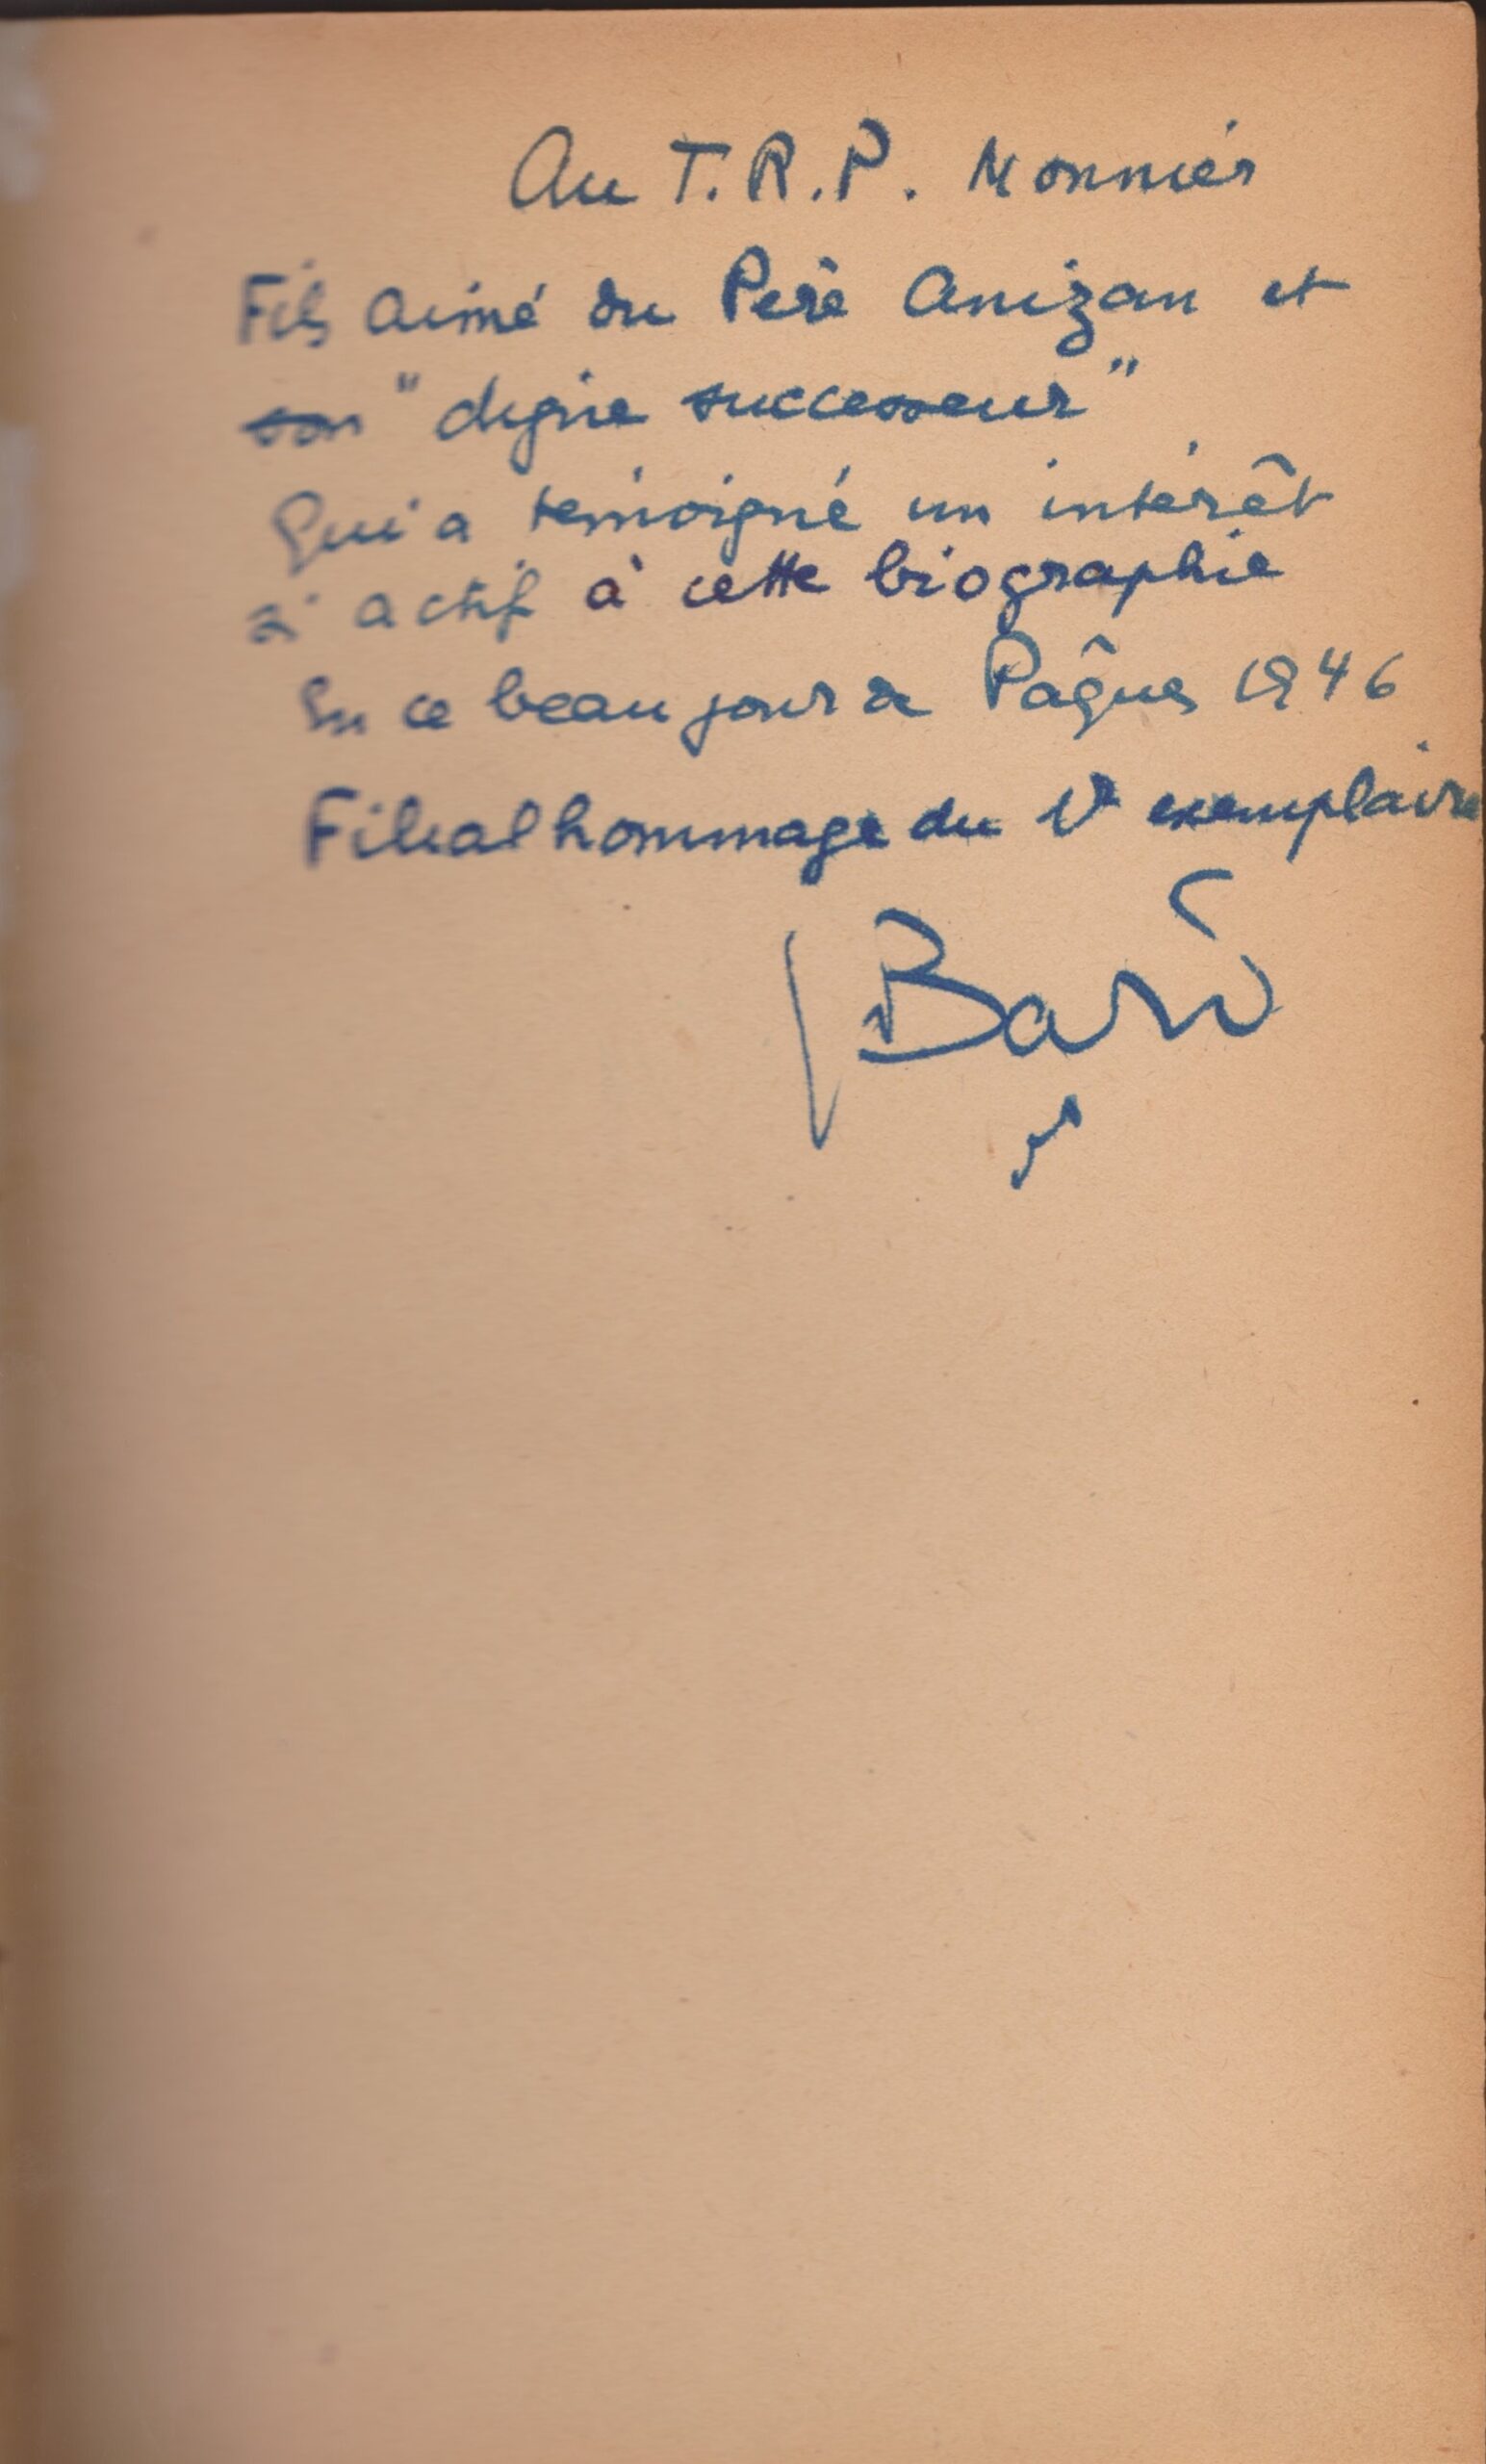 Au T.R.P. Monnier
Fils aimé du Père Anizan et
son "digne successeur"
Qui a témoigné un intérêt
si actif à cette biographie
En ce beau jour de Pâques 1946
Filial hommage du 1er exemplaire